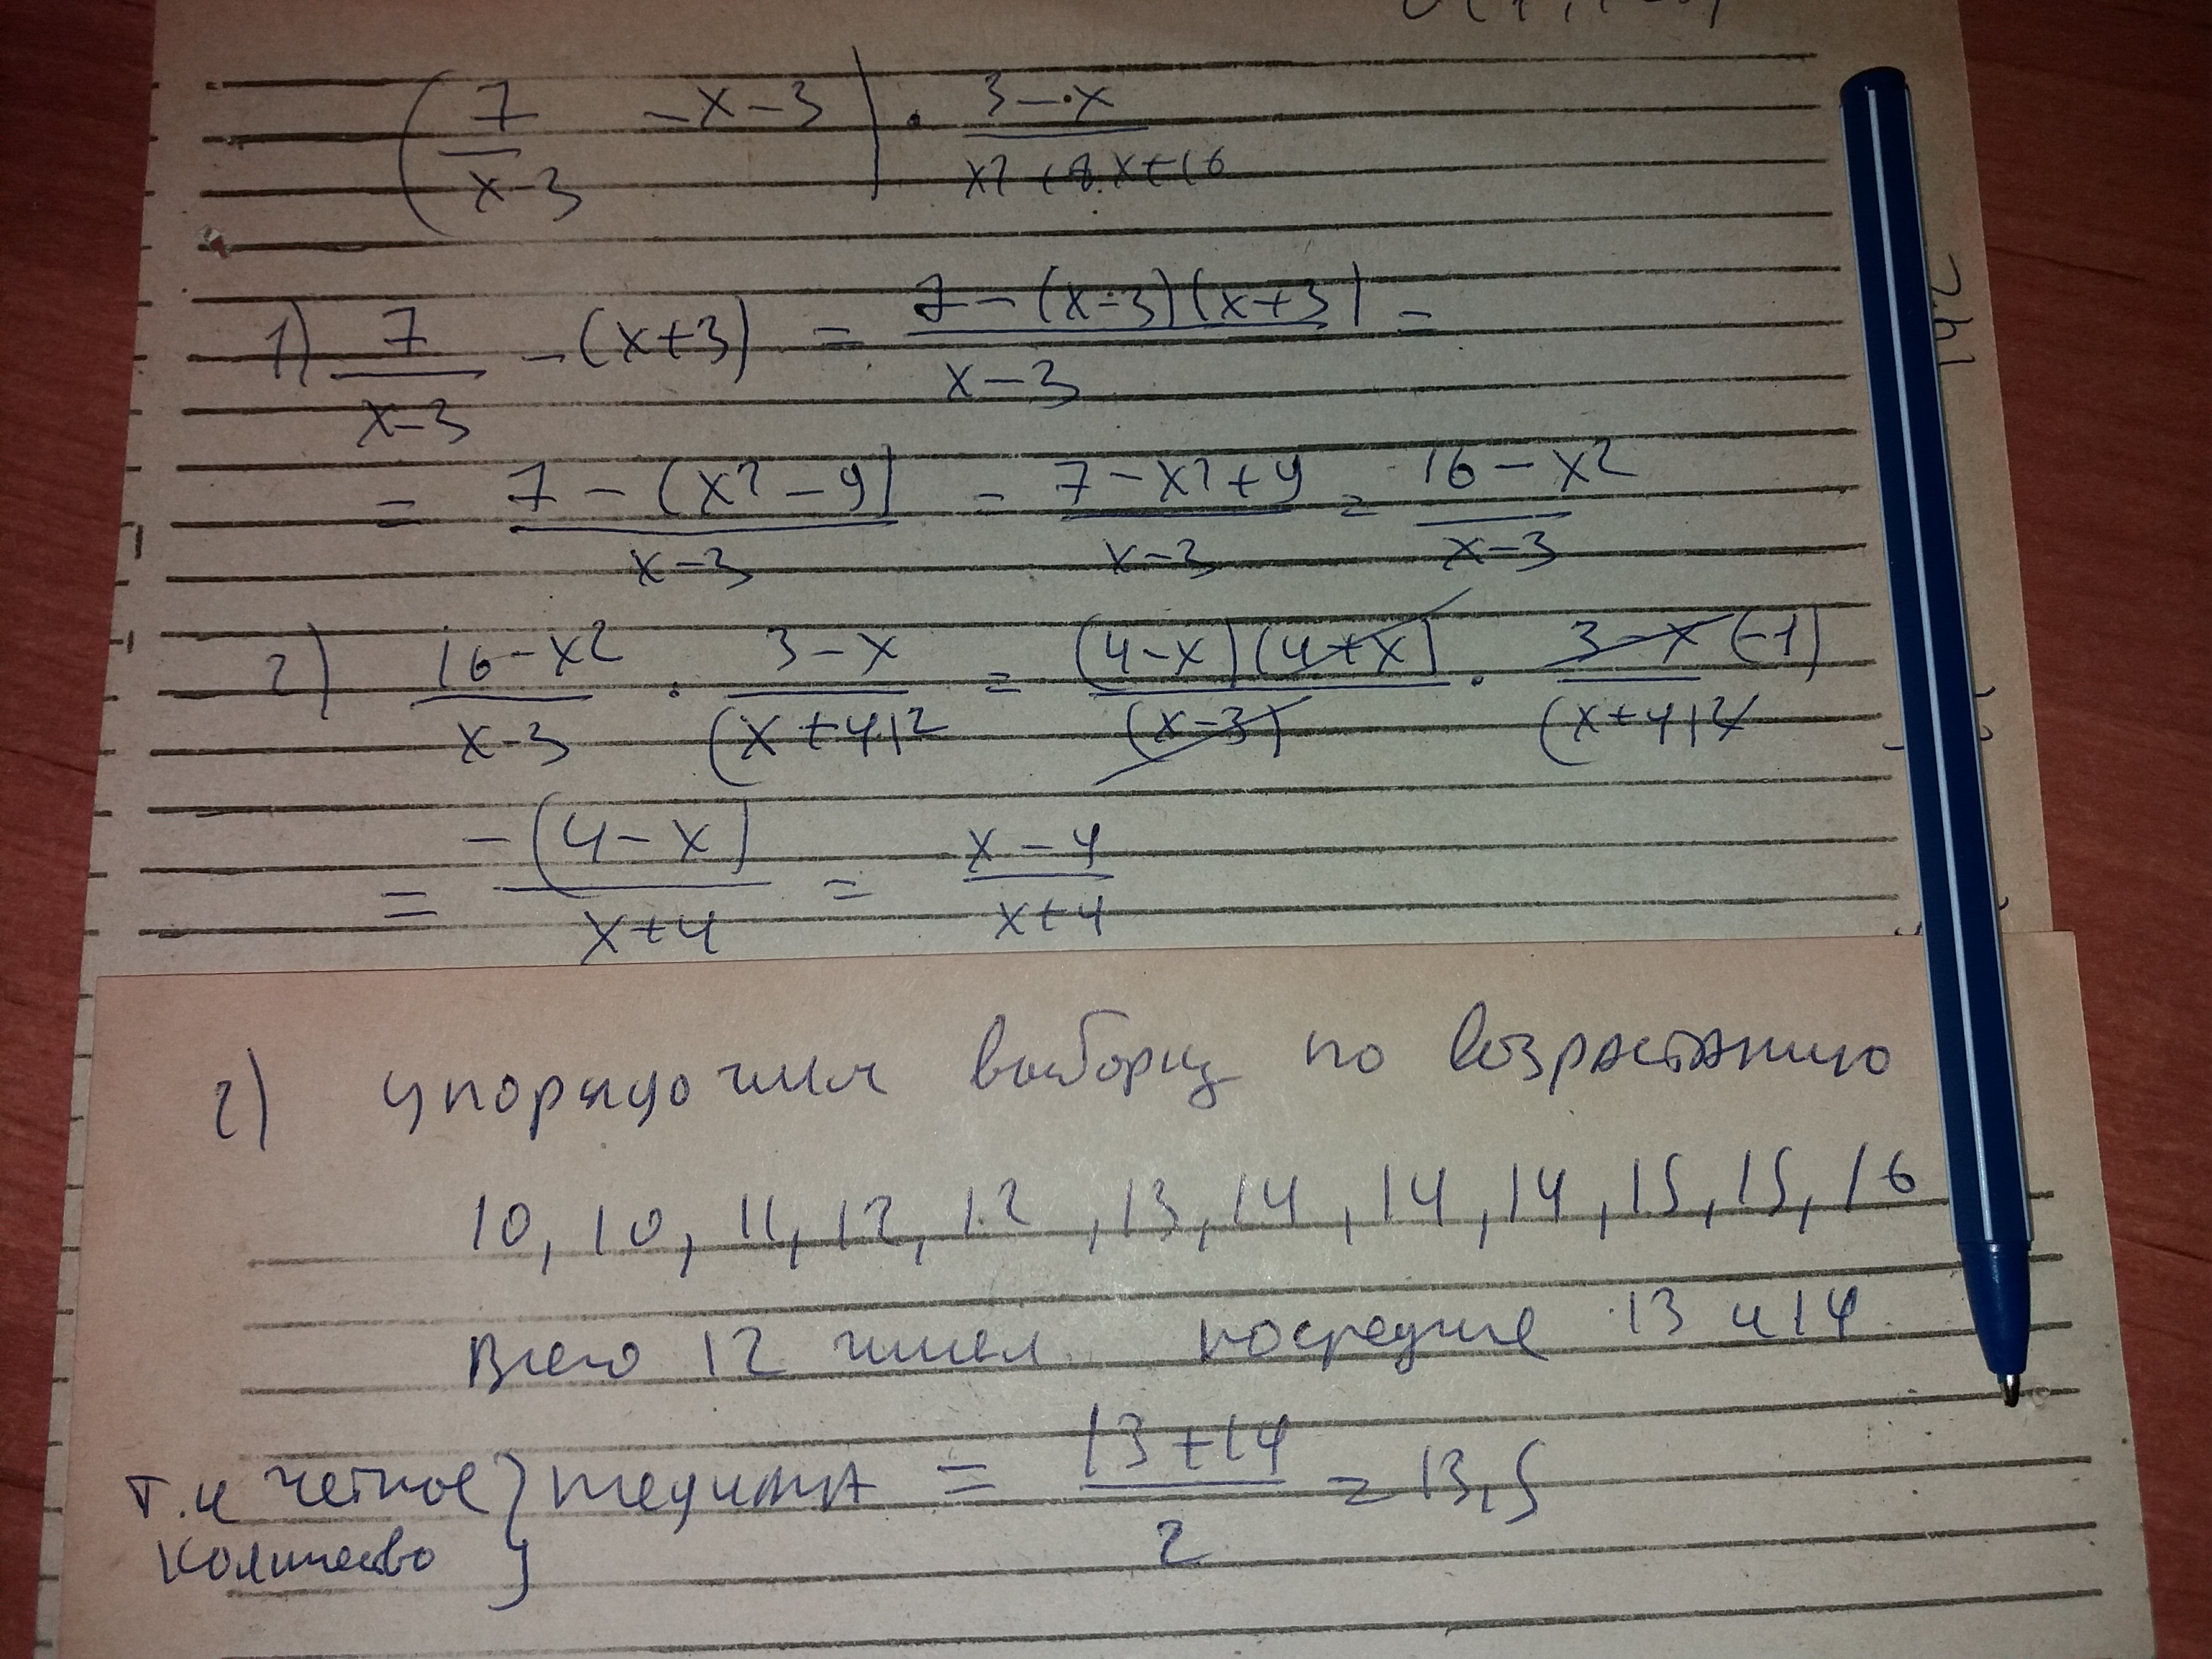 (7/(x-3) -x-3) · (3-x)/(x²+8x+16)
1) 7/(x-3) -(x+3) = (7-(x-3)(x+3))/(x-3) =
= (7-(x²-9))/(x-3) = (7-x²+9)/(x-3) = (16-x²)/(x-3)
2) (16-x²)/(x-3) · (3-x)/(x+4)² = (4-x)(4+x)/(x-3) · 3-x(-1)/(x+4)²
= -(4-x)/(x+4) = (x-4)/(x+4)
2) упорядочим выборку по возрастанию
10, 10, 11, 12, 12, 13, 14, 14, 14, 15, 15, 16
Всего 12 чисел. посредине 13 и 14.
т.к четное количество } медиана = (13+14)/2 = 13,5